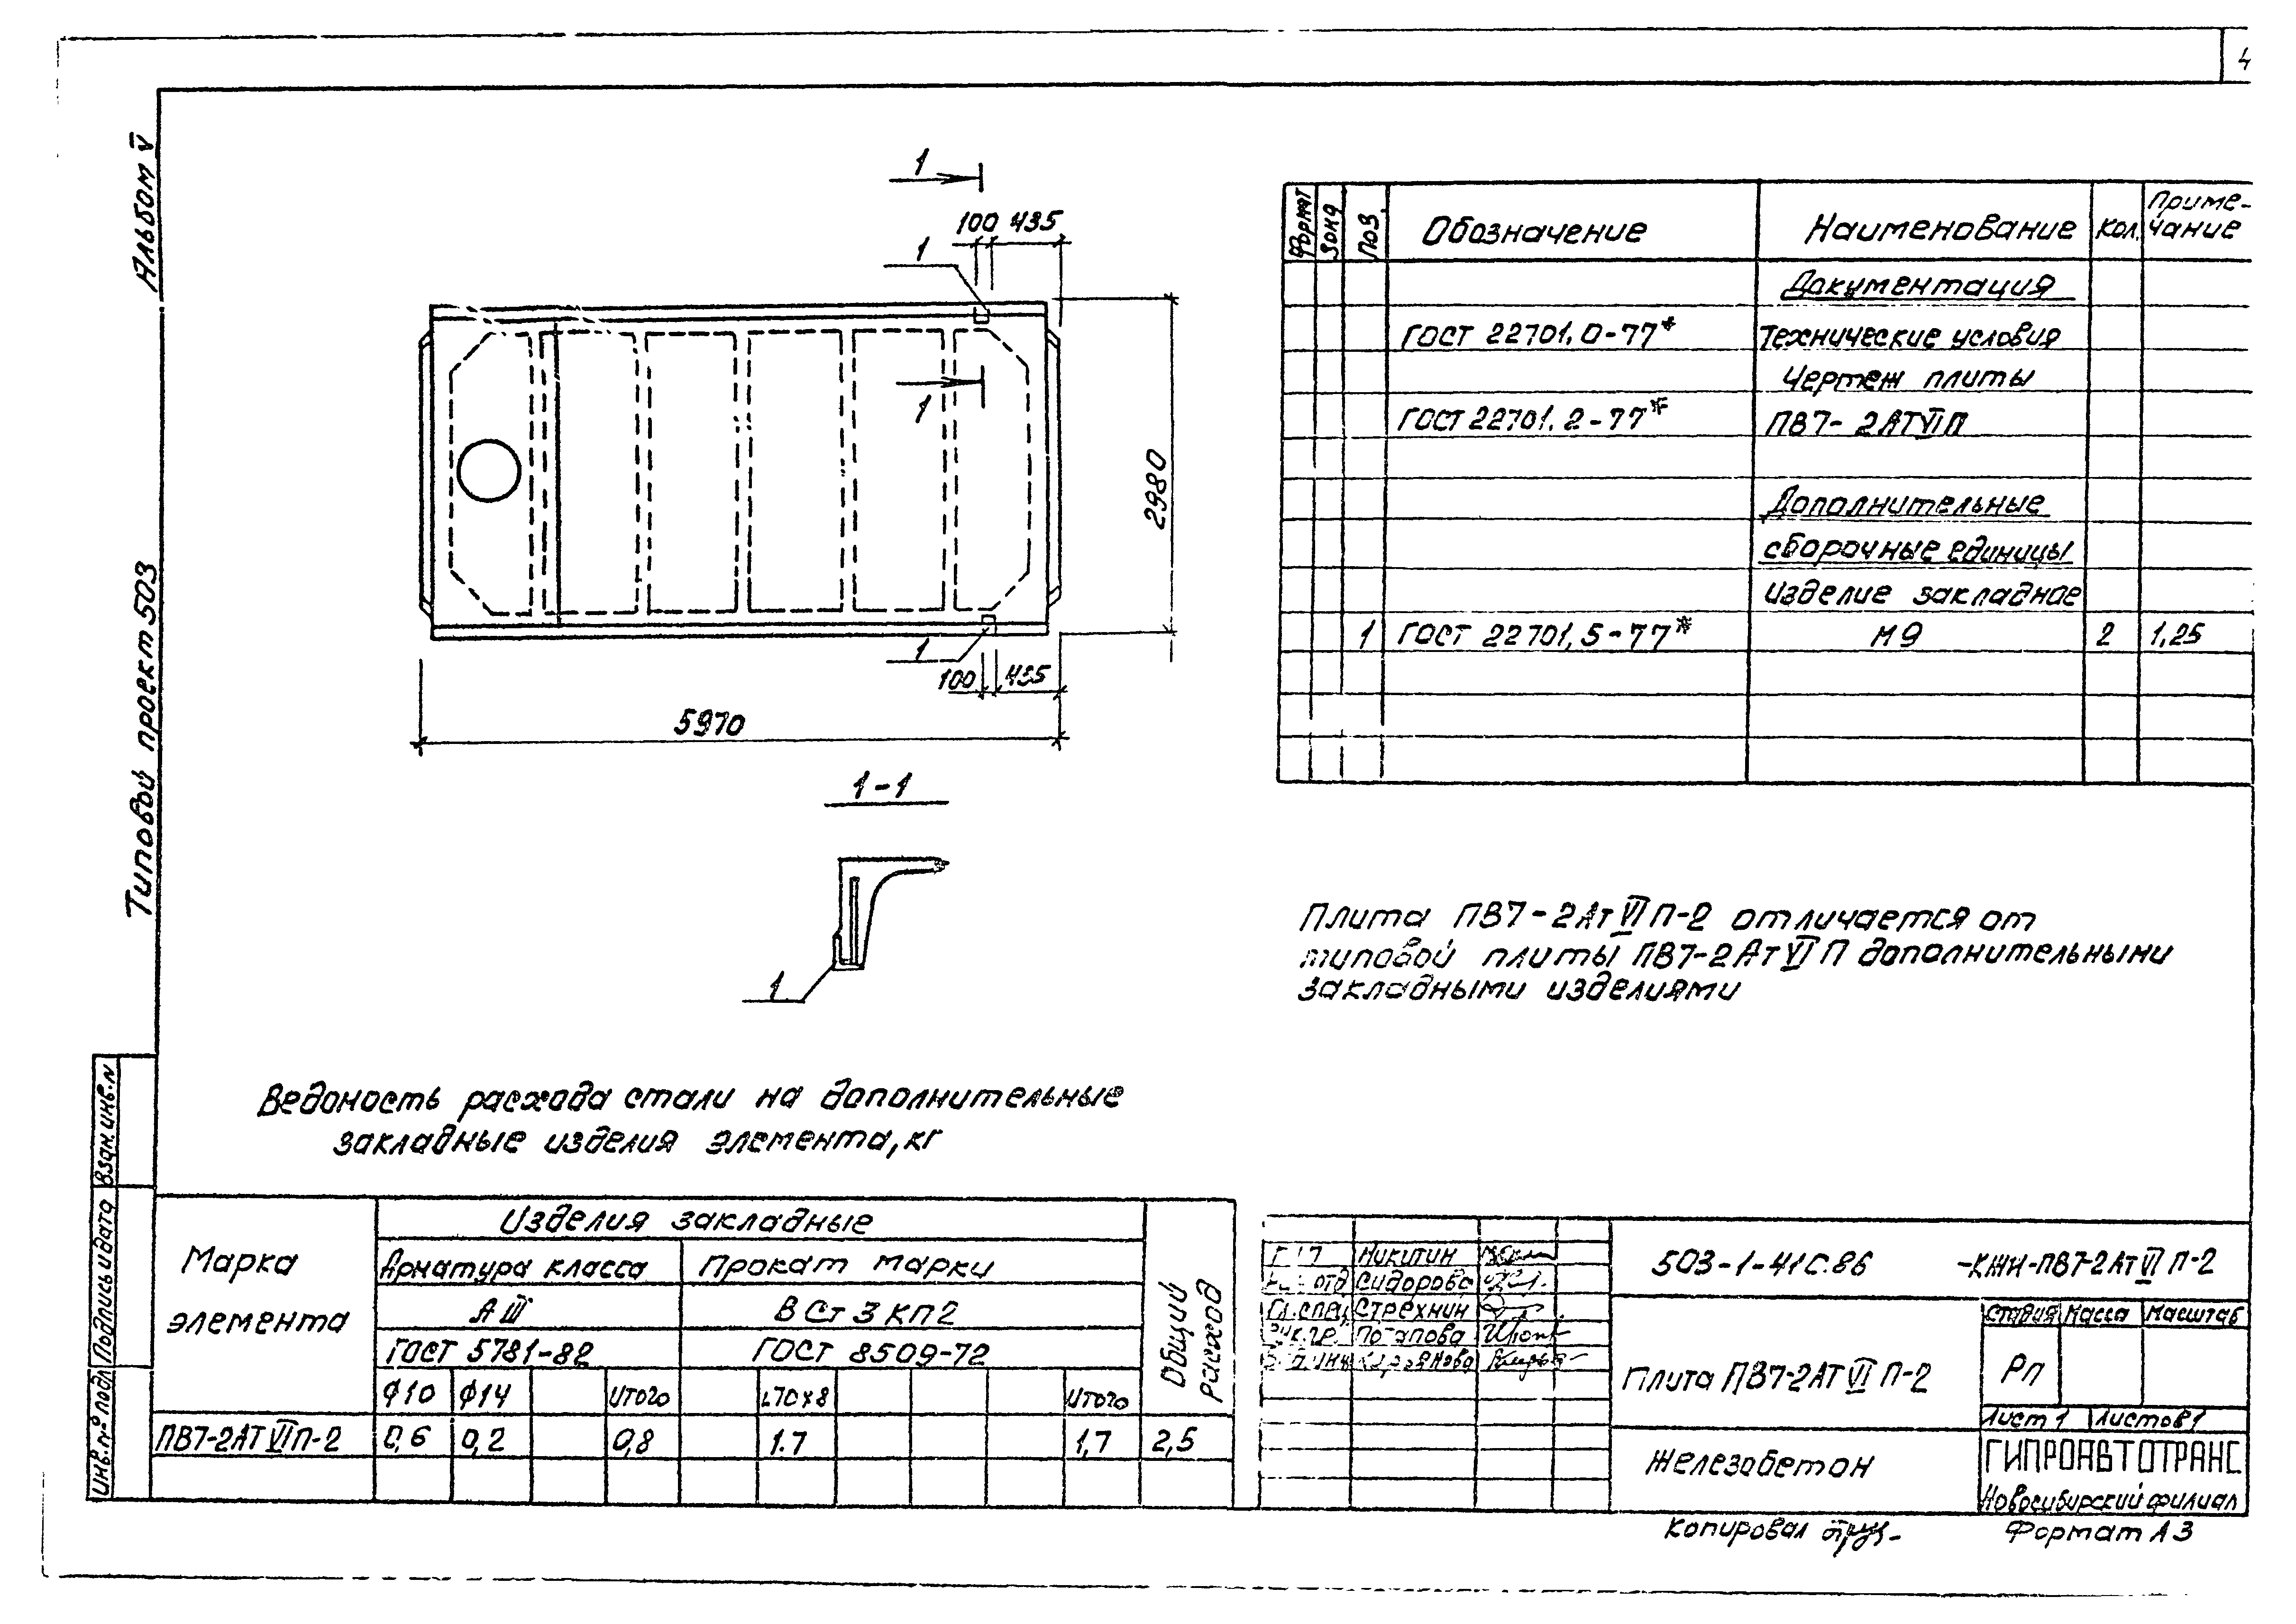 4
Альбом V
Типовой проект 503
1
100 435
1
1
2980
1
100 435
5970
1-1
1
Формат Зона Поз. Обозначение Наименование Кол. Приме-
чание
Документация
ГОСТ 22701.0-77* Технические условия
Чертеж плиты
ГОСТ 22701.2-77* ПВ7-2АТVIП
Дополнительные
сборочные единицы
Изделие закладное
1 ГОСТ 22701.5-77* М9 2 1,25
Плита ПВ7-2АтVIП-2 отличается от
типовой плиты ПВ7-2АтVIП дополнительными
закладными изделиями
Ведомость расхода стали на дополнительные
закладные изделия элемента, кг
Марка
элемента
Изделия закладные
Общий
расход
Арматура класса Прокат марки
А III В Ст 3 кп2
ГОСТ 5781-82 ГОСТ 8509-72
Ф10 Ф14 Итого L70×8 Итого
ПВ7-2АТVIП-2 0,6 0,2 0,8 1.7 1,7 2,5
Взам.инв.N
Подпись и дата
Инв.№ подл
Никитин
отд Сидорова
Гл.спец. Стрехнин
Рук.гр. Потапова
503-1-41С.86 -КЖИ-ПВ7-2АтVIП-2
Плита ПВ7-2АТVIП-2
Стадия Масса Масштаб
РП
Лист 1 Листов 1
Железобетон
ГИПРОАВТОТРАНС
Новосибирский филиал
Копировал
Формат А3